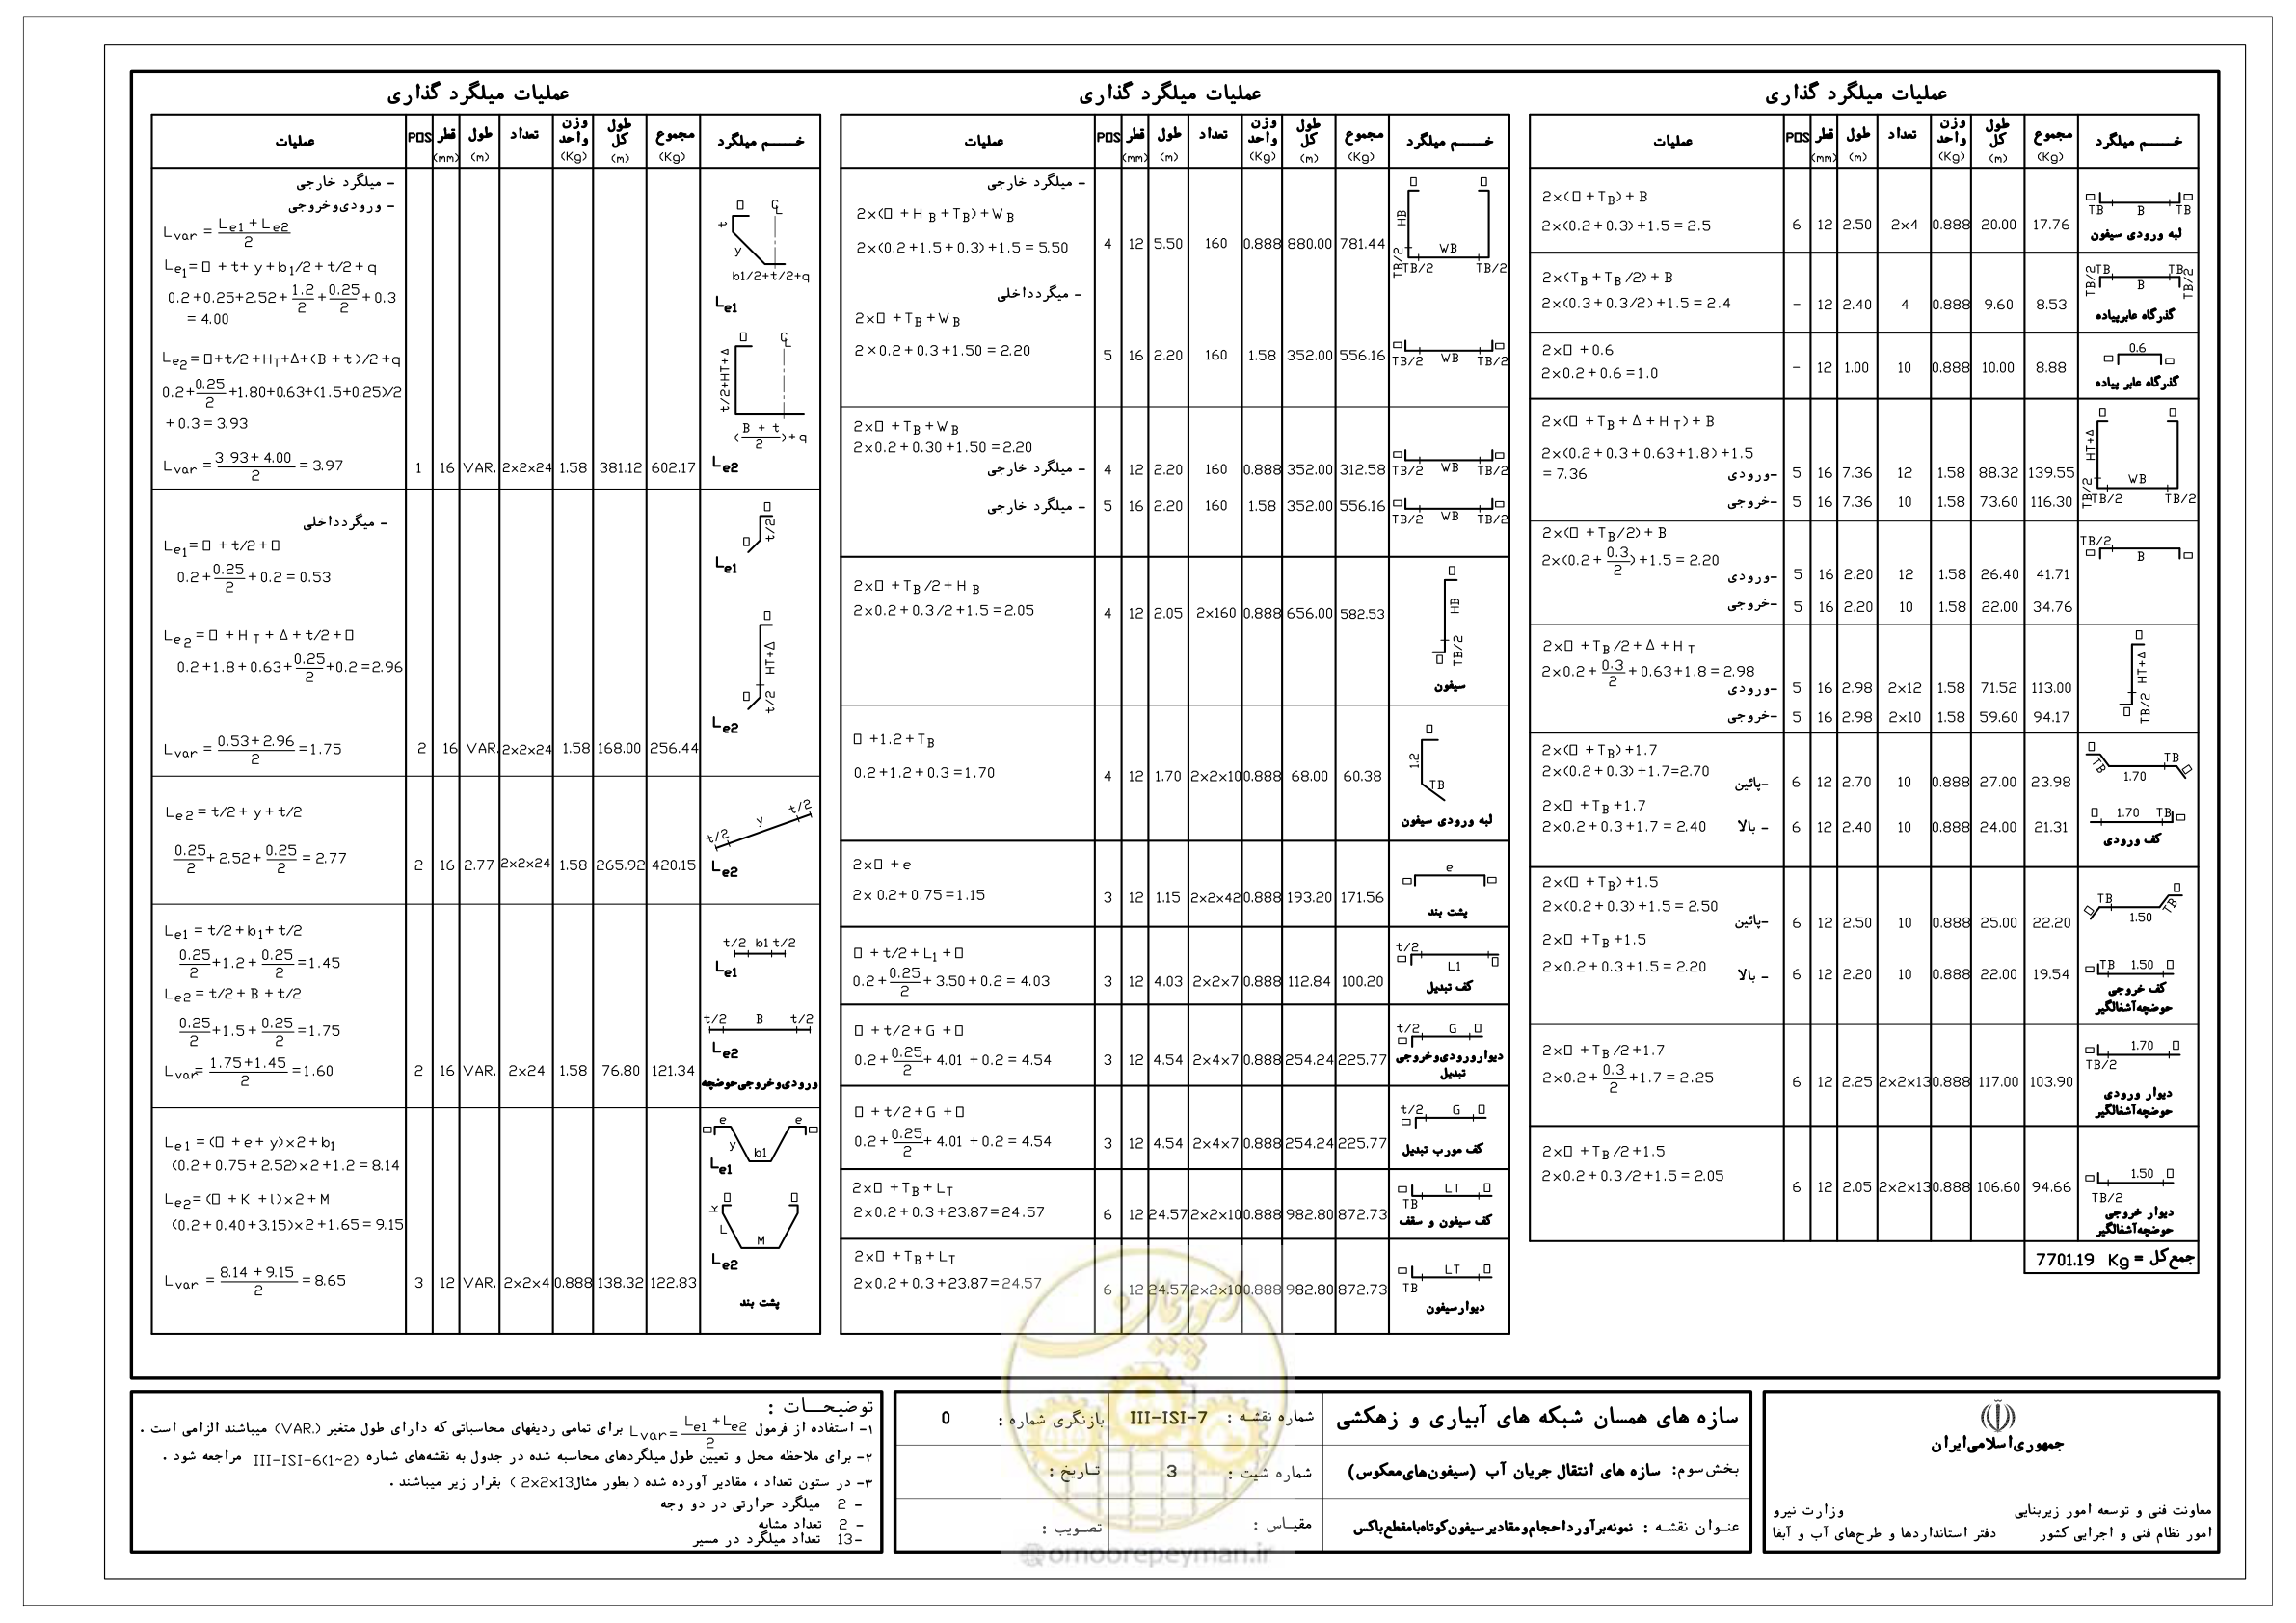 عملیات میلگرد گذاری
عملیات POS قطر (mm) طول (m) تعداد وزن واحد (Kg) طول کل (m) مجموع (Kg) خـــم میلگرد
- میلگرد خارجی
- ورودی‌وخروجی
Lvar = (Le1 + Le2)/2
Le1= □ + t+ y + b1/2 + t/2 + q
0.2+0.25+2.52+ 1.2/2 + 0.25/2 + 0.3
= 4.00
Le2= □+t/2+HT+Δ+(B + t)/2+q
0.2+ 0.25/2 +1.80+0.63+(1.5+0.25)/2
+ 0.3 = 3.93
Lvar = (3.93+ 4.00)/2 = 3.97 1 16 VAR. 2x2x24 1.58 381.12 602.17
□ t y b1/2+t/2+q
Le1
□ t/2+HT+Δ ((B + t)/2)+q
Le2
- میگردداخلی
Le1= □ + t/2+ □
0.2+ 0.25/2 +0.2 = 0.53
Le2 = □ + HT + Δ + t/2+ □
0.2+1.8 + 0.63+ 0.25/2 +0.2=2.96
Lvar = (0.53+2.96)/2 =1.75 2 16 VAR. 2x2x24 1.58 168.00 256.44
□ t/2 □
Le1
□ HT+Δ □ t/2
Le2
Le2 = t/2+ y + t/2
0.25/2 + 2.52+ 0.25/2 = 2.77 2 16 2.77 2x2x24 1.58 265.92 420.15
t/2 y t/2
Le2
Le1 = t/2+ b1+ t/2
0.25/2 +1.2 + 0.25/2 =1.45
Le2= t/2+ B + t/2
0.25/2 +1.5 + 0.25/2 =1.75
Lvar= (1.75+1.45)/2 =1.60 2 16 VAR. 2x24 1.58 76.80 121.34
t/2 b1 t/2
Le1
t/2 B t/2
Le2
ورودی‌وخروجی‌حوضچه
Le1 = (□ + e+ y)x2+b1
(0.2+0.75+2.52)x2+1.2=8.14
Le2= (□ + K + l)x2+M
(0.2+0.40+3.15)x2+1.65=9.15
Lvar = (8.14 +9.15)/2 = 8.65 3 12 VAR. 2x2x4 0.888 138.32 122.83
□ e e □ y b1
Le1
□ □ K L M
Le2
پشت بند
عملیات میلگرد گذاری
عملیات POS قطر (mm) طول (m) تعداد وزن واحد (Kg) طول کل (m) مجموع (Kg) خـــم میلگرد
- میلگرد خارجی
2x(□ + HB+TB)+WB
2x(0.2+1.5+0.3)+1.5 = 5.50 4 12 5.50 160 0.888 880.00 781.44
□ □ HB WB TB/2 TB/2 TB/2
- میگردداخلی
2x□ +TB+WB
2x0.2+0.3+1.50 = 2.20 5 16 2.20 160 1.58 352.00 556.16
□ □ TB/2 WB TB/2
2x□ +TB+WB
2x0.2+0.30+1.50=2.20
- میلگرد خارجی 4 12 2.20 160 0.888 352.00 312.58
□ □ TB/2 WB TB/2
- میلگرد خارجی 5 16 2.20 160 1.58 352.00 556.16
□ □ TB/2 WB TB/2
2x□ +TB/2+HB
2x0.2+0.3/2+1.5=2.05 4 12 2.05 2x160 0.888 656.00 582.53
□ HB □ TB/2
سیفون
□ +1.2+TB
0.2+1.2+0.3=1.70 4 12 1.70 2x2x10 0.888 68.00 60.38
□ 1.2 TB
لبه ورودی سیفون
2x□ +e
2x 0.2+0.75=1.15 3 12 1.15 2x2x42 0.888 193.20 171.56
□ e □
پشت بند
□ + t/2+L1+□
0.2+ 0.25/2 + 3.50+0.2 = 4.03 3 12 4.03 2x2x7 0.888 112.84 100.20
t/2 □ L1 □
کف تبدیل
□ + t/2+G +□
0.2+ 0.25/2 + 4.01 +0.2 = 4.54 3 12 4.54 2x4x7 0.888 254.24 225.77
t/2 □ G □
دیوارورودی‌وخروجی
تبدیل
□ + t/2+G +□
0.2+ 0.25/2 + 4.01 +0.2 = 4.54 3 12 4.54 2x4x7 0.888 254.24 225.77
t/2 □ G □
کف مورب تبدیل
2x□ +TB+LT
2x0.2+0.3+23.87=24.57 6 12 24.57 2x2x10 0.888 982.80 872.73
□ LT □ TB
کف سیفون و سقف
2x□ +TB+LT
2x0.2+0.3+23.87=24.57 6 12 24.57 2x2x10 0.888 982.80 872.73
□ LT □ TB
دیوارسیفون
عملیات میلگرد گذاری
عملیات POS قطر (mm) طول (m) تعداد وزن واحد (Kg) طول کل (m) مجموع (Kg) خـــم میلگرد
2x(□ +TB)+B
2x(0.2+0.3)+1.5=2.5 6 12 2.50 2x4 0.888 20.00 17.76
□ □ TB B TB
لبه ورودی سیفون
2x(TB+TB/2)+B
2x(0.3+0.3/2)+1.5=2.4 - 12 2.40 4 0.888 9.60 8.53
TB/2 TB B TB TB/2
گذرگاه عابرپیاده
2x□ +0.6
2x0.2+0.6=1.0 - 12 1.00 10 0.888 10.00 8.88
□ 0.6 □
گذرگاه عابر پیاده
2x(□ +TB+Δ+HT)+B
2x(0.2+0.3+0.63+1.8)+1.5
= 7.36 -ورودی 5 16 7.36 12 1.58 88.32 139.55
-خروجی 5 16 7.36 10 1.58 73.60 116.30
□ □ HT+Δ WB TB/2 TB/2 TB/2
2x(□ +TB/2)+B
2x(0.2+ 0.3/2)+1.5=2.20
-ورودی 5 16 2.20 12 1.58 26.40 41.71
-خروجی 5 16 2.20 10 1.58 22.00 34.76
TB/2 □ B □
2x□ +TB/2+Δ+HT
2x0.2+ 0.3/2 +0.63+1.8=2.98
-ورودی 5 16 2.98 2x12 1.58 71.52 113.00
-خروجی 5 16 2.98 2x10 1.58 59.60 94.17
□ HT+Δ □ TB/2
2x(□ +TB)+1.7
2x(0.2+0.3)+1.7=2.70
-پائین 6 12 2.70 10 0.888 27.00 23.98
□ TB 1.70 TB □
2x□ +TB+1.7
2x0.2+0.3+1.7=2.40 - بالا 6 12 2.40 10 0.888 24.00 21.31
□ 1.70 TB □
کف ورودی
2x(□ +TB)+1.5
2x(0.2+0.3)+1.5=2.50
-پائین 6 12 2.50 10 0.888 25.00 22.20
□ TB 1.50 TB □
2x□ +TB+1.5
2x0.2+0.3+1.5=2.20 - بالا 6 12 2.20 10 0.888 22.00 19.54
□ TB 1.50 □
کف خروجی
حوضچه‌آشغالگیر
2x□ +TB/2+1.7
2x0.2+ 0.3/2 +1.7=2.25 6 12 2.25 2x2x13 0.888 117.00 103.90
□ 1.70 □ TB/2
دیوار ورودی
حوضچه‌آشغالگیر
2x□ +TB/2+1.5
2x0.2+0.3/2+1.5=2.05 6 12 2.05 2x2x13 0.888 106.60 94.66
□ 1.50 □ TB/2
دیوار خروجی
حوضچه‌آشغالگیر
جمع‌کل = 7701.19 Kg
جمهوری‌اسلامی‌ایران
معاونت فنی و توسعه امور زیربنایی
امور نظام فنی و اجرایی کشور
وزارت نیرو
دفتر استانداردها و طرح‌های آب و آبفا
سازه های همسان شبکه های آبیاری و زهکشی
بخش‌سوم: سازه های انتقال جریان آب (سیفون‌های‌معکوس)
عنـوان نقشـه : نمونه‌برآورداحجام‌ومقادیرسیفون‌کوتاه‌بامقطع‌باکس
شماره نقشـه : III-ISI-7
شماره شیت : 3
مقیـاس :
بازنگری شماره : 0
تـاریخ :
تصـویب :
امور پیمان
@omoorepeyman.ir
توضیحـــات :
۱- استفاده از فرمول Lvar=(Le1+Le2)/2 برای تمامی ردیفهای محاسباتی که دارای طول متغیر (VAR.) میباشند الزامی است .
۲- برای ملاحظه محل و تعیین طول میلگردهای محاسبه شده در جدول به نقشه‌های شماره III-ISI-6(1~2) مراجعه شود .
۳- در ستون تعداد ، مقادیر آورده شده ( بطور مثال2x2x13 ) بقرار زیر میباشند .
- 2 میلگرد حرارتی در دو وجه
- 2 تعداد مشابه
-13 تعداد میلگرد در مسیر